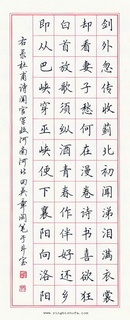 剑外忽传收蓟北初闻涕泪满衣裳
却看妻子愁何在漫卷诗书喜欲狂
白首放歌须纵酒青春作伴好还乡
即从巴峡穿巫峡便下襄阳向洛阳
右录杜甫诗闻官军收河南河北